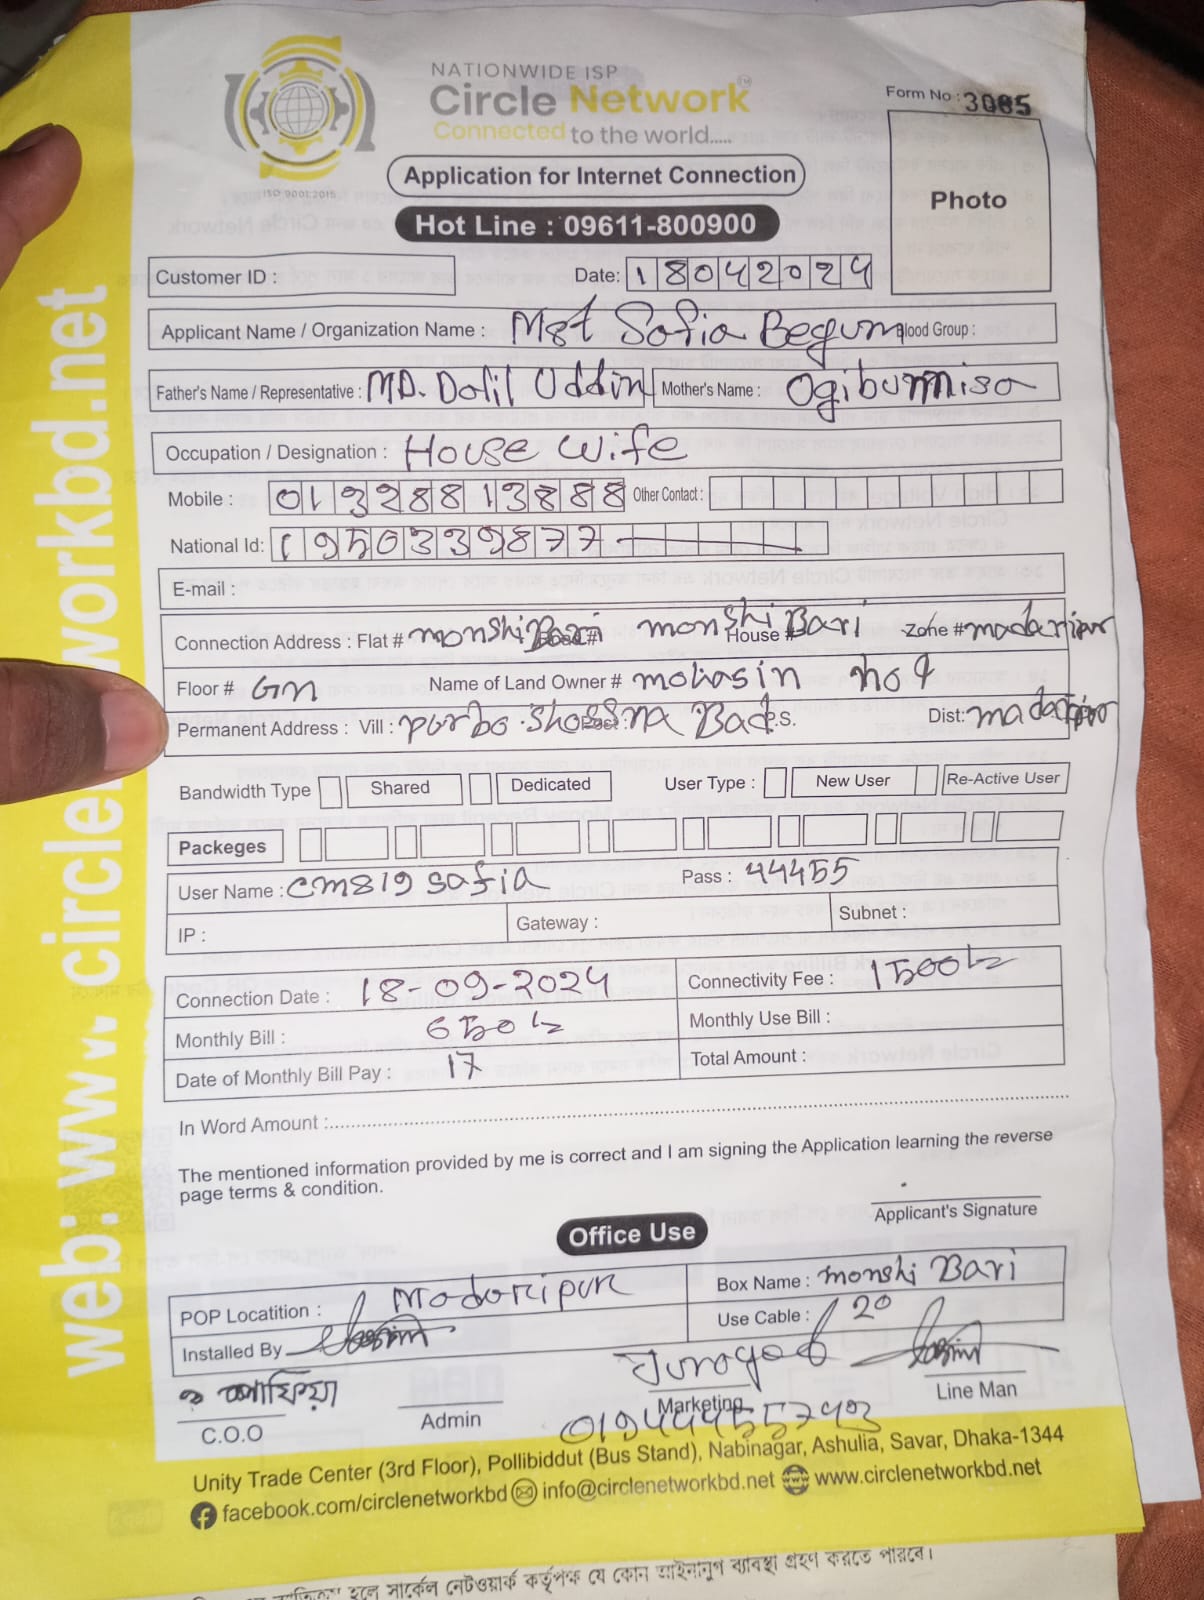 NATIONWIDE ISP
Circle Network™
Connected to the world.....
ISO 9001:2015
Form No : 3085
Application for Internet Connection
Photo
Hot Line : 09611-800900
Customer ID :
Date: 18042024
Applicant Name / Organization Name : Mst Sofia Begum Blood Group :
Father's Name / Representative : MD. Dolil Uddin Mother's Name : Ogibunnisa
Occupation / Designation : House wife
Mobile : 01328813888 Other Contact :
National Id: 1950339877
E-mail :
Connection Address : Flat # monshi Bari Road # monshi House # Bari Zone # madaripur
Floor # GM Name of Land Owner # mohasin
Permanent Address : Vill : purbo P.S. Dist: madaripur
Bandwidth Type Shared Dedicated User Type : New User Re-Active User
Packeges
User Name : cm819 safia Pass : 44455
IP : Gateway : Subnet :
Connection Date : 18-09-2024 Connectivity Fee : 1500/-
Monthly Bill : 650/- Monthly Use Bill :
Date of Monthly Bill Pay : 17 Total Amount :
In Word Amount :
The mentioned information provided by me is correct and I am signing the Application learning the reverse
page terms & condition.
Applicant's Signature
Office Use
POP Locatition : Madaripur Box Name : monshi Bari
Installed By Use Cable : 120
C.O.O Admin Marketing Line Man
Unity Trade Center (3rd Floor), Pollibiddut (Bus Stand), Nabinagar, Ashulia, Savar, Dhaka-1344
facebook.com/circlenetworkbd info@circlenetworkbd.net www.circlenetworkbd.net
হলে সার্কেল নেটওয়ার্ক কর্তৃপক্ষ যে কোন আইনানুগ ব্যাবস্থা গ্রহণ করতে পারবে।
web: www.circlenetworkbd.net